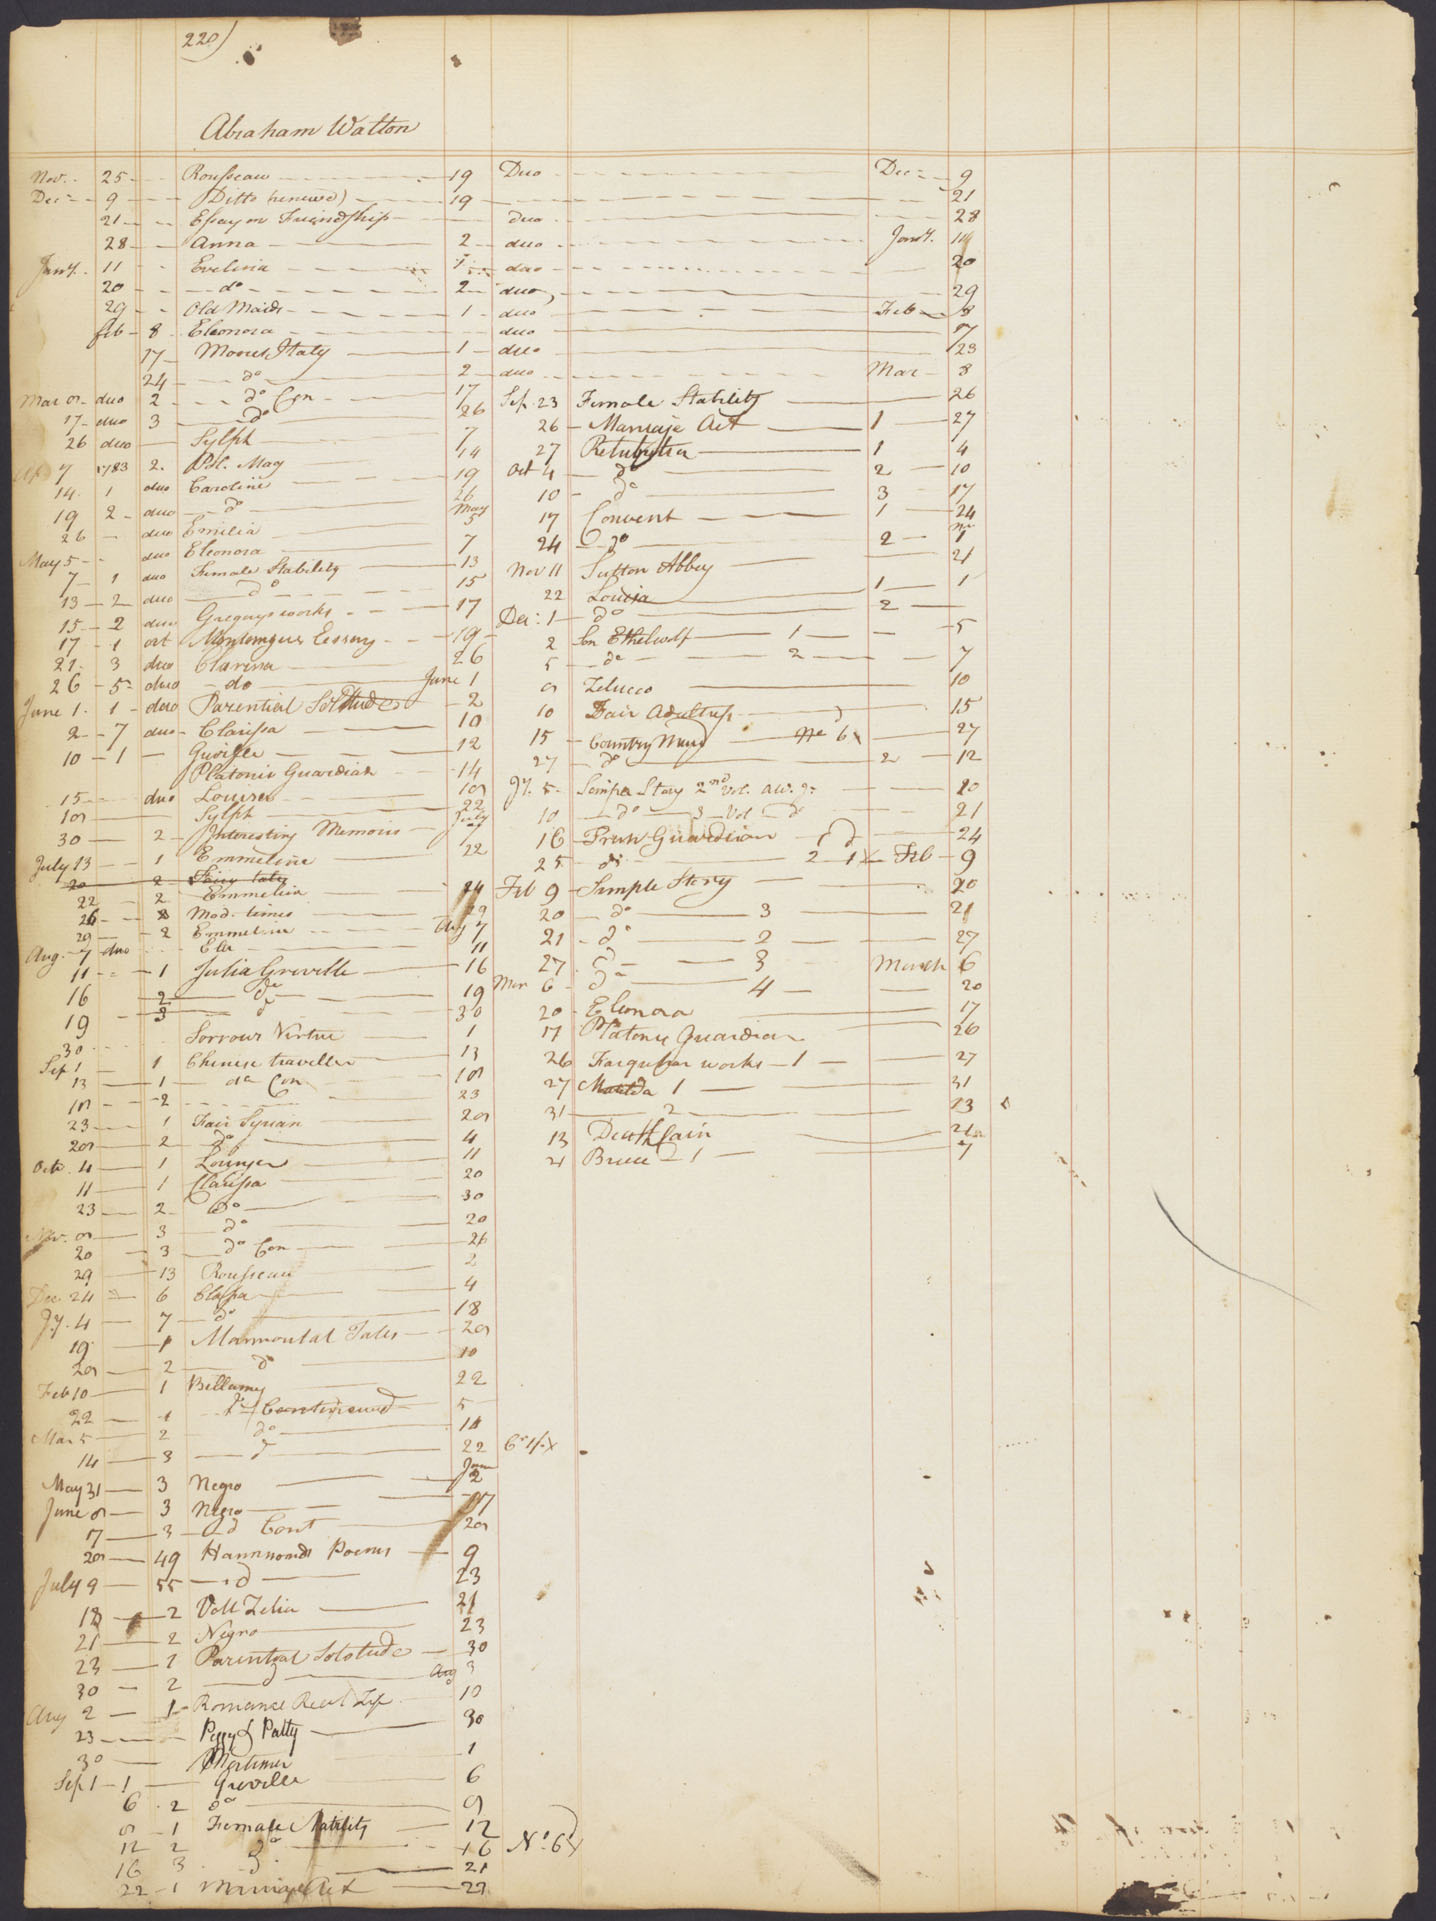 220)
Abraham Walton
Nov. 25 Rousseau 19 Duo Dec 9
Dec 9 Ditto (renewed) 19 21
21 Essay on Friendship duo 28
28 Anna 2 duo Jany. 11
Jany. 11 Evelina 1 duo 20
20 do 2 duo 29
29 Old Maids 1 duo Feb 8
feb 8 Eleonora duo 17
17 Moores Italy 1 duo 23
24 do 2 duo Mar 8
Mar 9 duo 2 do Con 17
17 duo 3 do 26
26 duo Sylph 7
Ap 7 1783 2. Pol. Mag 14
14 1 duo Caroline 19
19 2 duo do 26
26 duo Emilia May 5
May 5 duo Eleonora 7
7 1 duo Female Stability 13
13 2 duo do 15
15 2 duo Gregorys works 17
17 1 oct Essay 19
21 3 duo Clarissa 26
26 5 duo do June 1
June 1 1 duo Parential Solitude 2
2 7 duo Clarissa 10
10 1 Greville 12
Platonic Guardian 14
15 duo Louisa 19
19 Sylph 22
30 2 Interesting Memoirs July 7
July 13 1 Emmeline 22
20 2 Fairy tales
22 2 Emmelin 24
26 8 Mod. times 29
29 2 Emmeline Aug 7
Aug. 7 duo Ela 11
11 1 Julia Greville 16
16 2 do 19
19 3 d 30
30 Sorrows Virtue 1
Sep 1 1 Chinese traveller 13
13 1 do Con 19
19 2 23
23 1 Fair Syrian 29
29 2 do 4
Octr. 4 1 Lounger 11
11 1 Clarissa 20
23 2 do 30
Nov. 9 3 do 20
20 3 do Con 26
29 13 Rousseau 2
Dec. 24 6 Clarissa 4
Jy. 4 7 do 18
19 1 Marmontal Tales 29
29 2 do 10
Feb 10 1 Bellamy 22
22 1 do Continued 5
Mar 5 2 do 14
14 3 d 22
May 31 3 Negro June 2
June 9 3 Negro 17
17 3 d Cont 29
29 49 Hammonds Poems 9
July 9 55 d 23
18 2 Voll Zelia 21
21 2 Negro 23
23 1 Parential Solotude 30
30 2 d Aug 3
Aug 2 1 Romance Real Life 10
23 Peggy & Patty 30
30 Mortimer 1
Sep 1 1 Greville 6
6 2 do 9
9 1 Female Stability 12
12 2 do 16 No. 6
16 3 21
22 1 Marriage Act 22
Sep. 23 Female Stability 26
26 Marriage Act 1 27
27 Retribution 1 4
Oct 4 do 2 10
10 do 3 17
17 Convent 1 24
24 do 2 Nov 1
Nov 11 Sutton Abbey 21
22 Louisa 1 1
Dec: 1 do 2
2 Son Ethelwolf 1 5
5 do 2 7
9 Zelucco 10
10 Fair Adultress 15
15 Country Maid No 6 27
27 do 2 12
Jy. 5 Simple Story 2nd Vol. 10
10 do 3 Vol do 21
16 Guardian 24
25 do 2 1 Feb 9
Feb 9 Simple Story 20
20 do 3 21
21 do 2 27
27 d 3 March 6
Mar 6 do 4 20
20 Eleonora 17
17 Platonic Guardian 26
26 Farquhar works 1 27
27 Matilda 1 31
31 2 13
13 Death Cain 21
21 Bruce 1 7